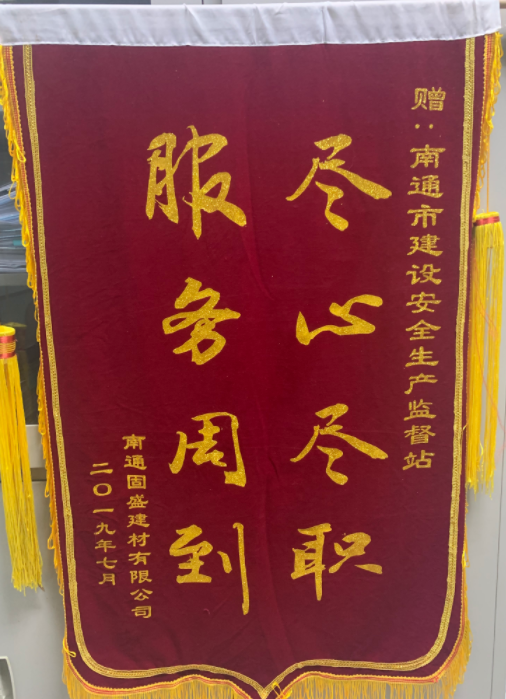 赠：南通市建设安全生产监督站
尽心尽职
服务周到
南通固盛建材有限公司
二〇一九年七月